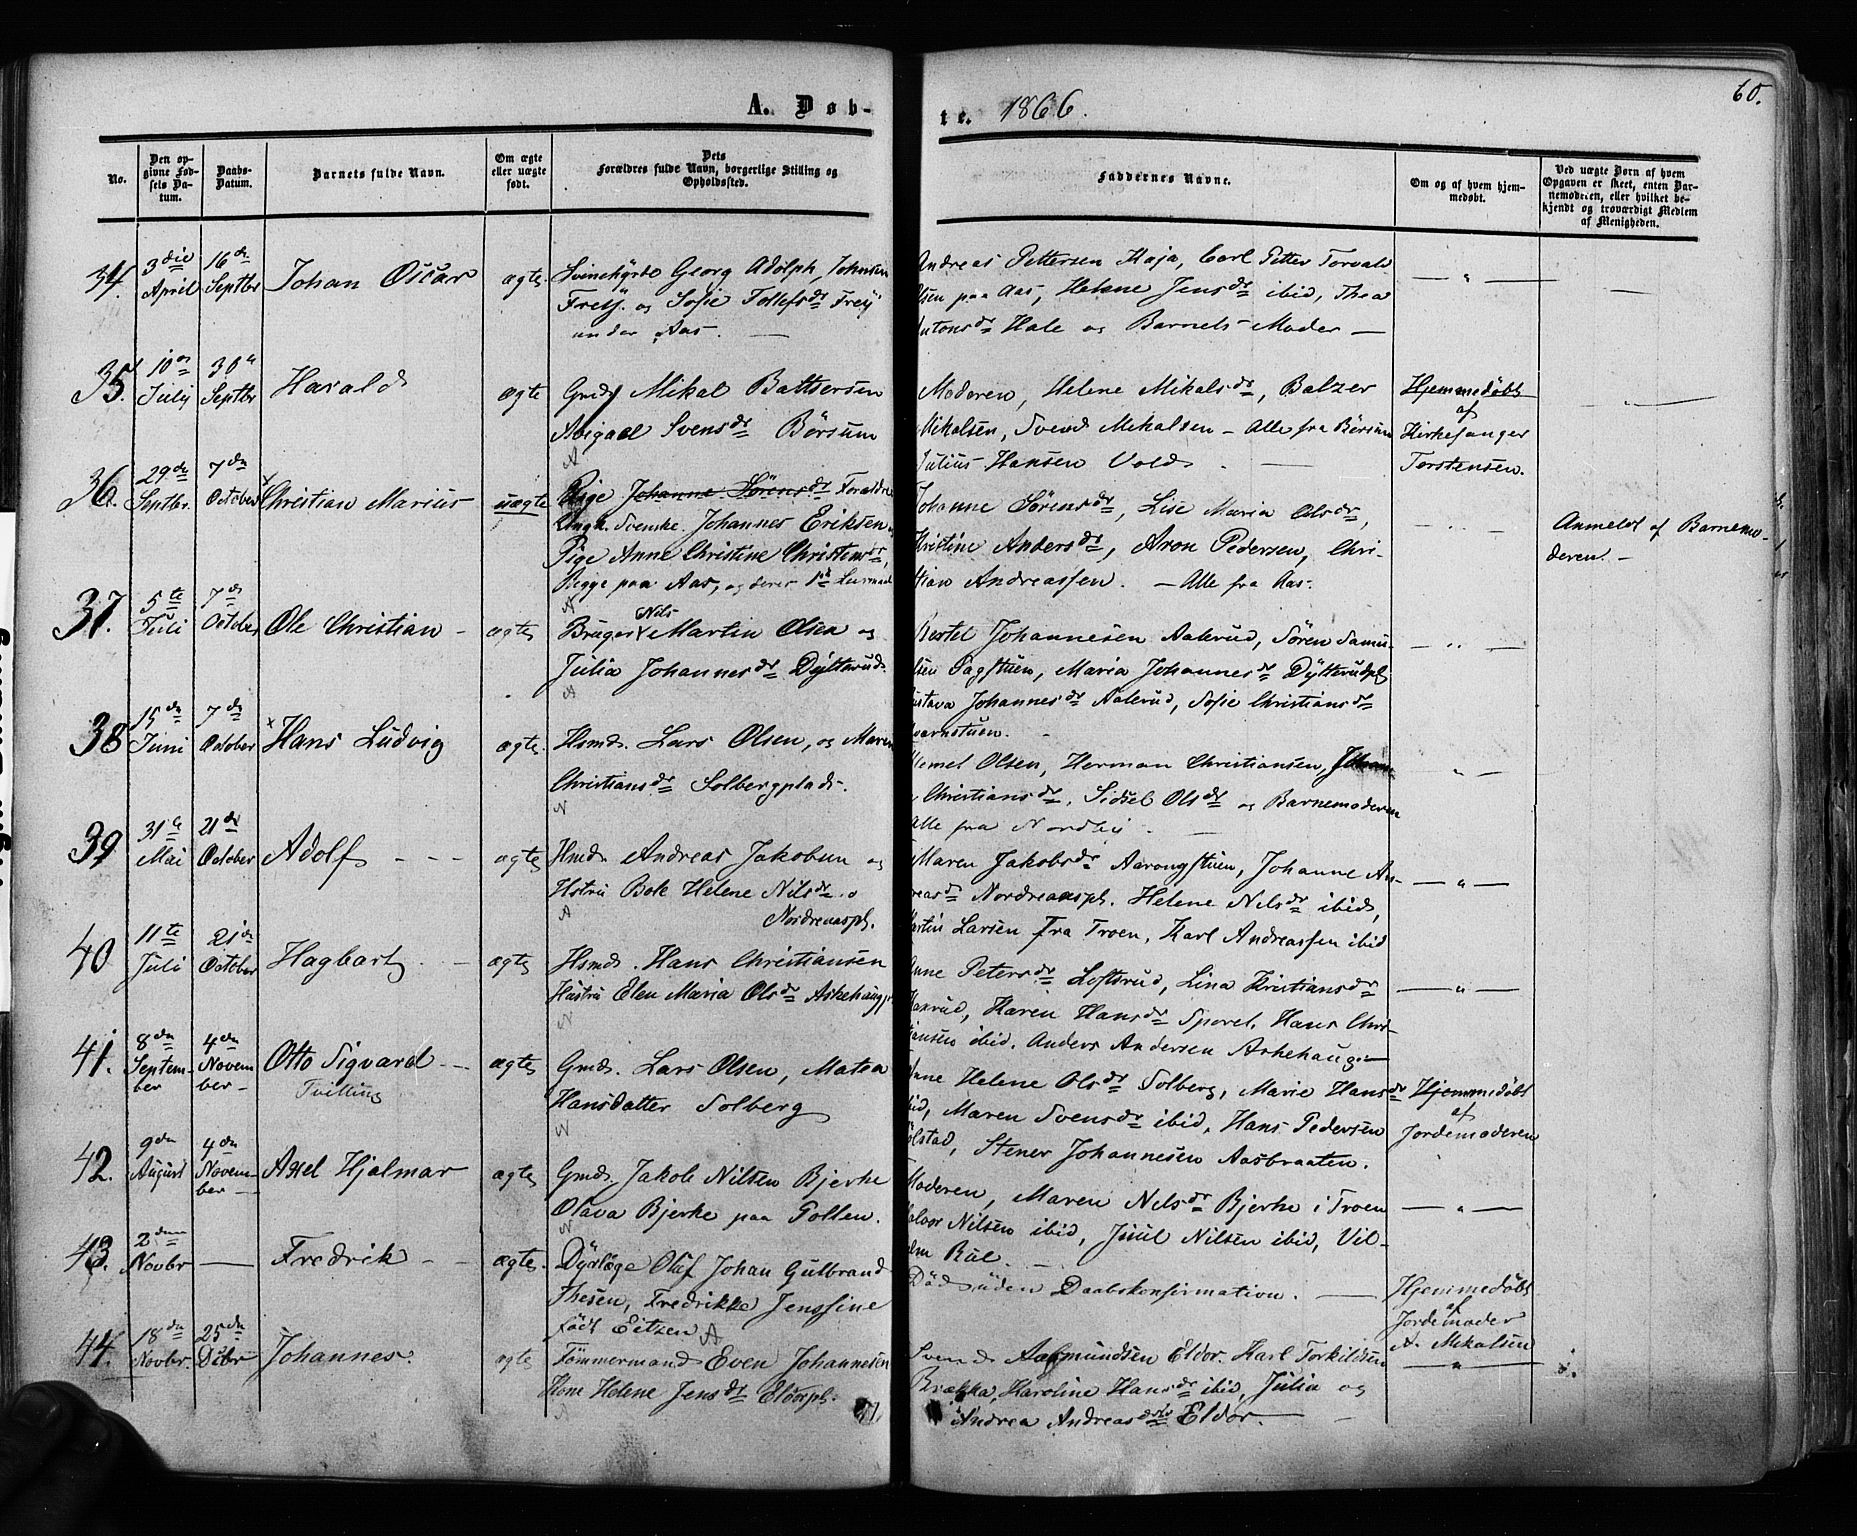 A. Døb-
te. 1866.
60.
No.
Den op-
givne Fød-
sels Da-
tum.
Daabs-
Datum.
Barnets fulde Navn.
Om ægte
eller uægte
født.
Dets
Forældres fulde Navn, borgerlige Stilling og
Opholdssted.
Faddernes Navne.
Om og af hvem hjem-
medøbt.
Ved uægte Børn af hvem
Opgaven er skeet, enten Bar-
nemoderen, eller hvilket be-
kjendt og troværdigt Medlem
af Menigheden.
34. 3die April 16de Septbr Johan Oscar ægte Georg Adolph Johnsen
og Sofie Tollefsdr
under Aas.
Andreas Pettersen Haja, Carl Petter Torvald
Olsen paa Aas, Helene Jensdr ibid, Thea
Antonsdr Hale og Barnets Moder
35. 10de July 30 Septbr Harald ægte Gmd Mikal Baltsersen
Abigael Svensdr Børsum
A
Moderen, Helene Mikalsdr, Balzer
Mikalsen, Svend Mikalsen - Alle fra Børsum
Julius Hansen Vold.
Hjemmedøbt
af
Kirkesanger
Torstensen.
36. 29de Septbr. 7de October Christian Marius uægte Pige Johanne Sørensdr Forældre
Ungk. Svenske. Johannes Eriksen
Pige Anne Christine Christensdr,
Begge paa Aas, og deres 1ste
A
Johanne Sørensdr, Lise Maria Olsdr,
Kristine Andersdr, Aron Pedersen, Chri-
stian Andreassen. - Alle fra Aas.
Anmeldt af Barnemo-
deren. -
37. 5te Juli 7de October Ole Christian ægte Bruger Nils Martin Olsen og
Julia Johannesdr Dytterud.
A
Bertel Johannesen Aalerud, Søren Samu-
elsen Sagstuen, Maria Johannesdr Dytterudpl
Gustava Johannesdr Aalerud, Sofie Christiansdr
Kvarnstuen.
38 15de Juni 7de October Hans Ludvig ægte Hsmd. Lars Olsen, og Maren
Christiansdr Solbergplads.
N
Olsen, Herman Christiansen, Johan-
Christiansdr, Sidsel Olsdr og Barnemoderen
Alle fra Nordby.
39 31te Mai 21de October Adolf ægte Hmd. Andreas Jakobsen og
Hstru Helene Nilsdr.
Nordreaaspl.
A
Maren Jakobsdr Aarongstuen, Johanne An-
dreasdr Nordreaaspl. Helene Nilsdr ibid,
Martin Larsen fra Troen, Karl Andreassen ibid
40 11te Juli 21de October Hagbart ægte Hsmd. Hans Christiansen
Hustru Elen Maria Olsdr Askehaugpl
N
Anne Petersdr Loftsrud, Lina Kristiansdr
Karen Hansdr Sporel, Hans Chri-
stiansen ibid. Anders Andersen Askehaug
41. 8de September 4de November Otto Sigvard ægte Gmd. Lars Olsen, Matea
Tvilling Hansdatter Solberg
N
Anne Helene Olsdr Solberg, Marie Hansdr
ibid, Maren Svensdr ibid, Hans Pedersen
Stener Johannesen Aasbraaten.
Hjemmedøbt
af
Jordemoderen
42. 9de August 4de November Axel Hjalmar ægte Gmd. Jakob Nilsen Bjerke
Olava Bjerke paa Pollen.
N
Moderen, Maren Nilsdr Bjerke i Troen
Halvor Nilsen ibid, Juul Nilsen ibid, Vil-
43. 2den Novbr Fredrik ægte Dyrlæge Oluf Johan Gulbrand
Thesen, Fredrikke Jenssine
født Eitzen A
Død uden Daabskonfirmation.
Hjemmedøbt
af
Jordemoder
A. Mikalsen
44. 18de Novbr. 25de Dcbr Johannes. ægte Tømmermand Even Johannesen
Kone Helene Jensdr Eldorpl.
A
Svend Aasmundsen Eldor. Karl Torkildsen
Brække, Karoline Hansdr ibid, Julia og
Andrea Andreasdotr Eldor.